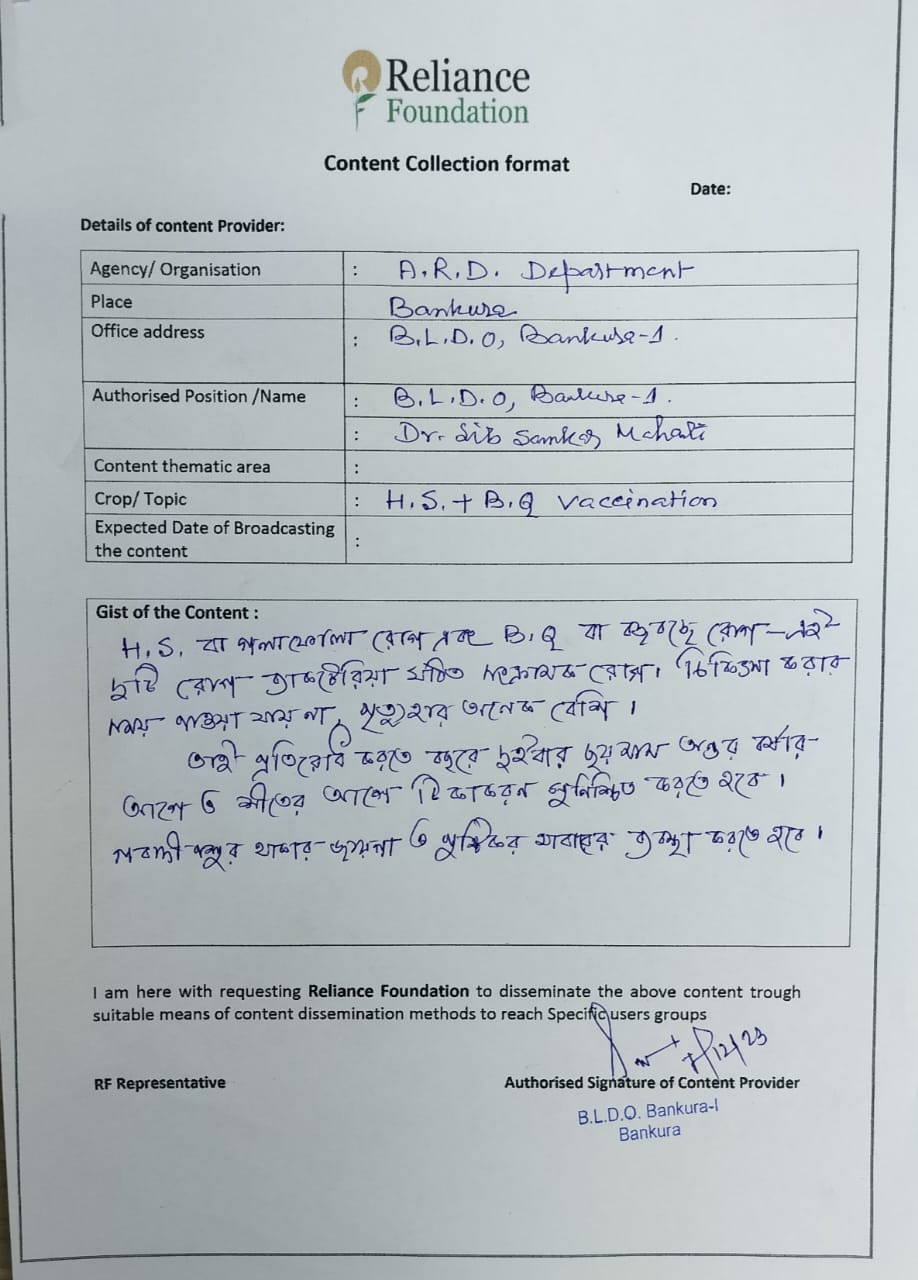 Reliance
Foundation
Content Collection format
Date:
Details of content Provider:
Agency/ Organisation : A.R.D. Department
Place Bankura
Office address : B.L.D.O, Bankura-1.
Authorised Position /Name : B.L.D.O, Bankura-1.
: Dr. Sib Sankar Mahati
Content thematic area :
Crop/ Topic : H.S. + B.Q vaccination
Expected Date of Broadcasting
the content :
Gist of the Content :
H.S. বা গলাফোলা রোগ এবং B.Q বা রোগ - এই
দুটি রোগ ব্যাকটেরিয়া ঘটিত সংক্রামক রোগ। চিকিৎসা করার
সময় পাওয়া যায় না, মৃত্যুহার অনেক বেশি।
তাই প্রতিরোধ করতে বছরে দুইবার ছয় মাস অন্তর বর্ষার
আগে ও শীতের আগে টিকাকরন সুনিশ্চিত করতে হবে।
গবাদী পশুর থাকার জায়গা ও পুষ্টিকর খাবারের ব্যবস্থা করতে হবে।
I am here with requesting Reliance Foundation to disseminate the above content trough
suitable means of content dissemination methods to reach Specific users groups
7/12/23
RF Representative Authorised Signature of Content Provider
B.L.D.O. Bankura-I
Bankura